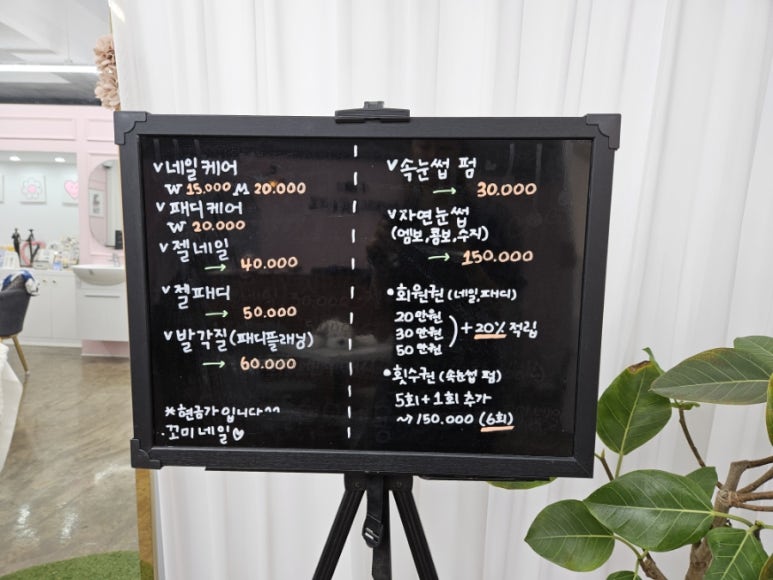 v 네일케어
W 15.000 M 20.000
v 패디케어
W 20.000
v 젤네일
→ 40.000
v 젤패디
→ 50.000
v 발각질(패디플래닝)
→ 60.000
※현금가입니다^^
.꼬미네일♡
v 속눈썹 펌
→ 30.000
v 자연눈썹
(엠보,콤보,수지)
→ 150.000
• 회원권 (네일.패디)
20만원
30만원
50만원
) +20% 적립
• 횟수권 (속눈썹 펌)
5회+1회 추가
~> 150.000 (6회)